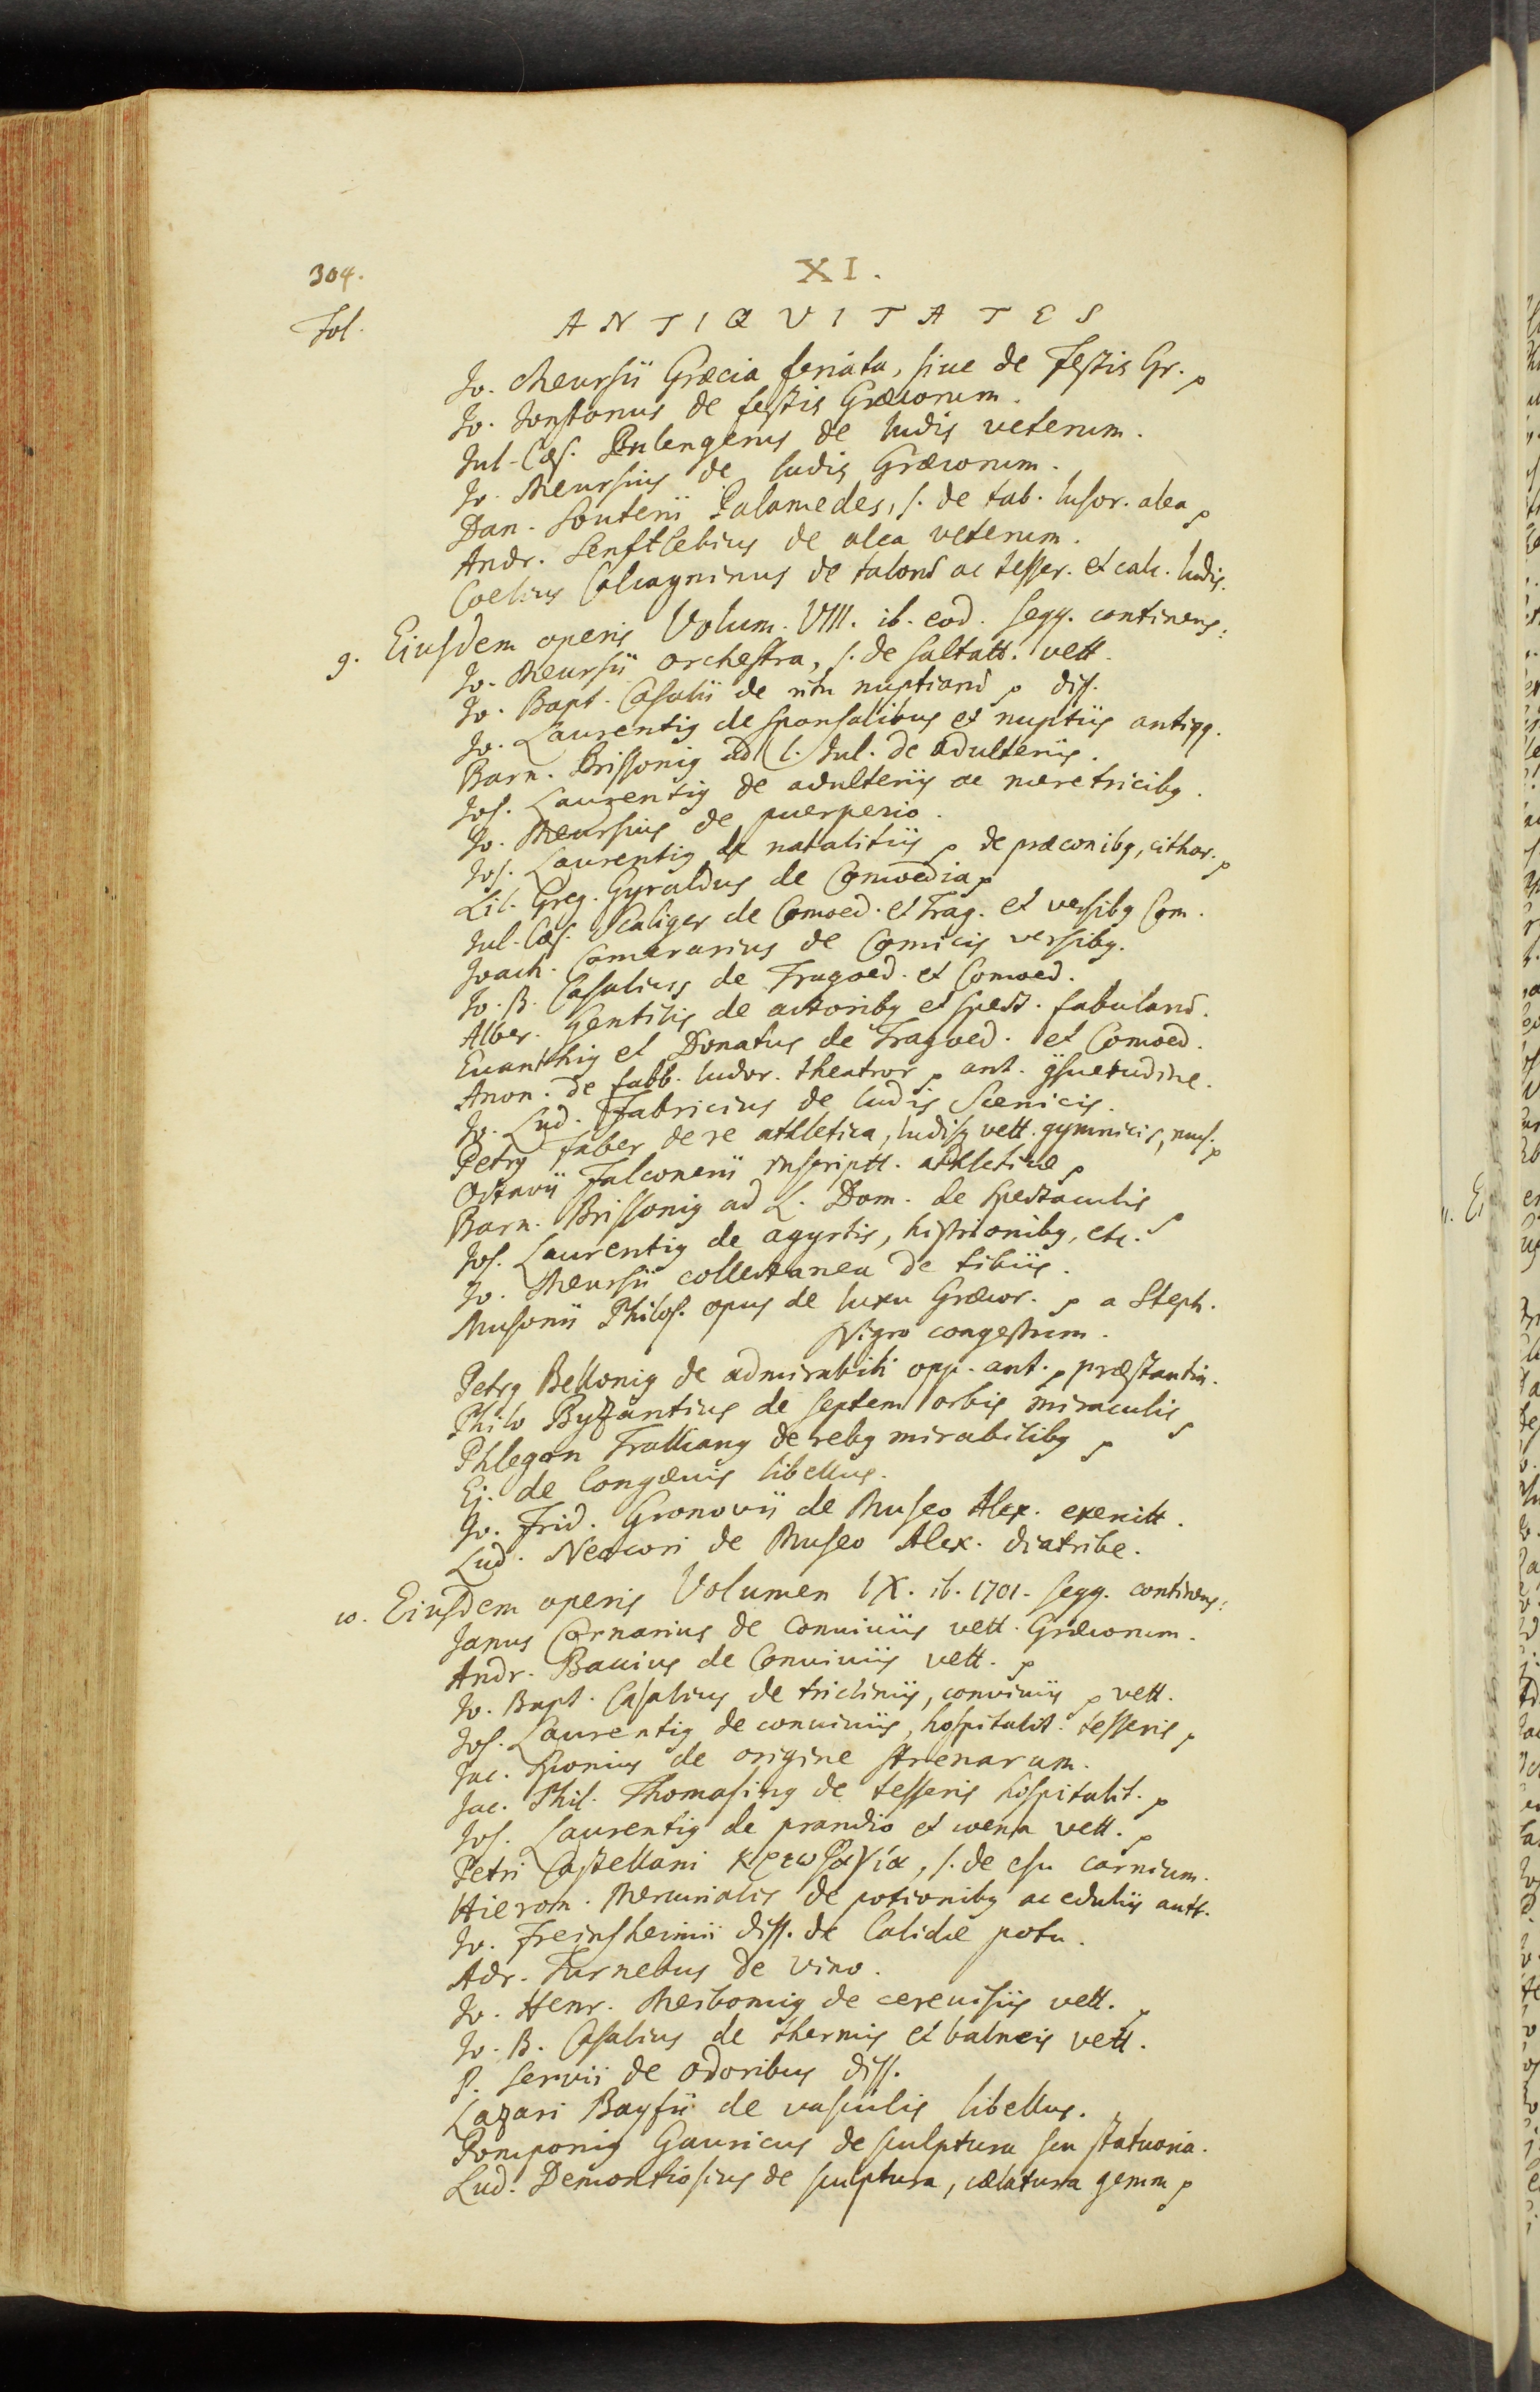 304.
XI.
Fol.
ANTIQVITATES
Jo. Meursii Græcia feriata, siue de Festis Gr. ꝛ
Jo. Jonstonus de festis Græcorum.
Jul. Cæs. Bulengerus de ludis veterum.
Jo. Meursius de ludis Græcorum.
Dan. Souterii Palamedes, s. de tab. lusor. alea ꝛ
Andr. Senftlebius de alea veterum.
Coelius Calcagninus de talorum ac tesser. et calc. ludis.
9. Eiusdem operis Volum. VIII. ib. eod. seqq. continens:
Jo. Meursii orchestra, s. de saltatt. vett.
Jo. Bapt. Casalii de ritu nuptiarum ꝛ diss.
Jo. Laurentiꝰ de sponsalibus et nuptiis antiqq.
Barn. Brissoniꝰ ad l. Jul. de adulteriis.
Jos. Laurentiꝰ de adulteriis ac meretricibꝰ.
Jo. Meursius de puerperio.
Jos. Laurentiꝰ de natalitiis ꝛ de præconibꝰ, cithar. ꝛ
Lil. Greg. Gyraldus de Comoedia ꝛ
Jul. Cæs. Scaliger de Comoed. et Trag. et versibꝰ Com.
Joach. Camerarius de Comicis versibꝰ.
Jo. B. Casalius de Tragoed. et Comoed.
Alber. Gentilis de actoribꝰ et spect. fabularum.
Euanthiꝰ et Donatus de Tragoed. et Comoed.
Anon. de fabb. ludor. theatror ꝛ ant. ꝯsuetudine.
Jo. Lud. Fabricius de ludis Scenicis.
Petrꝰ Faber de re athletica, ludisqꝫ vett. gymnicis, mus. ꝛ
Octavii Falconerii inscriptt. athleticæ ꝛ
Barn. Brissoniꝰ ad L. Dom. de spectaculis
Jos. Laurentiꝰ de agyrtis, histrionibꝰ, etc. ꝛ
Jo. Meursii collectanea de tibiis.
Musonii Philos. opus de luxu Græcor. ꝛ a Steph.
Nigro congestum.
Petrꝰ Belloniꝰ de admirabili opp. ant. ꝛ præstantia.
Philo Byzantius de septem orbis miraculis ꝛ
Phlegon Trallianꝰ de rebꝰ mirabilibꝰ ꝛ
Ej. de longævis libellus.
Jo. Frid. Gronovii de Museo Alex. exercitt.
Lud. Neocori de Museo Alex. diatribe.
10. Eiusdem operis Volumen IX. ib. 1701. seqq. continens:
Janus Cornarius de Conuiuiis vett. Græcorum.
Andr. Baccius de Conuiuiis vett. ꝛ
Jo. Bapt. Casalius de tricliniis, conviviis ꝛ vett.
Jos. Laurentiꝰ de conuiuiis, hospitalit. tesseris ꝛ
Jac. Sponius de origine strenarum.
Jac. Phil. Thomasinꝰ de tesseris hospitalit. ꝛ
Jos. Laurentiꝰ de prandio et coena vett. ꝛ
Petri Castellani κρεωφαγία, s. de esu carnium.
Hieron. Mercurialis de potionibꝰ ac eduliis antt.
Jo. Freinshemii diss. de Calidæ potu.
Adr. Turnebus de vino.
Jo. Henr. Meibomiꝰ de cereuisiis vett. ꝛ
Jo. B. Casalius de thermis et balneis vett.
P. Servii de odoribus diss.
Lazari Bayfii de vasculis libellus.
Pomponiꝰ Gauricus de sculptura seu statuaria.
Lud. Demontiosius de sculptura, cælatura gemm ꝛ